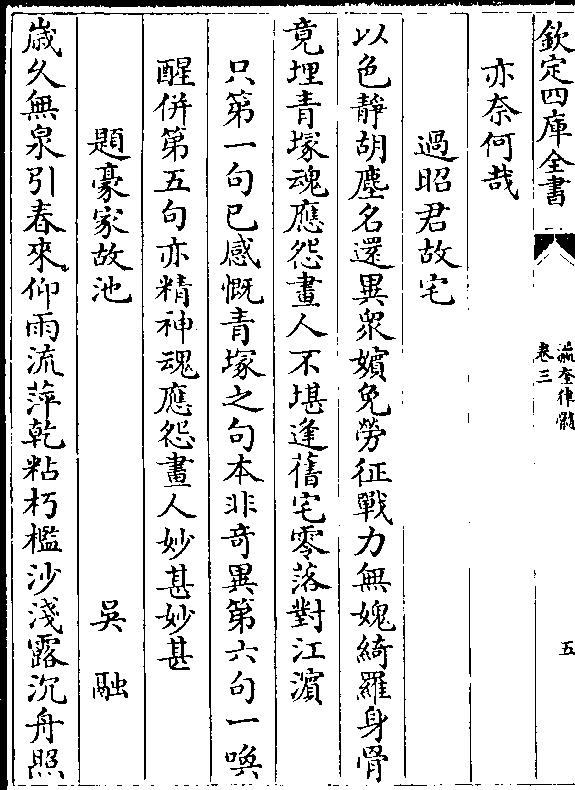 欽定四庫全書
瀛奎律髓
卷三
五
亦奈何哉
過昭君故宅
以色靜胡塵名還異衆嬪免勞征戰力無媿綺羅身骨
竟埋青塚魂應怨畫人不堪逢舊宅零落對江濵
只第一句已感慨青塚之句本非奇異第六句一喚
醒併第五句亦精神魂應怨畫人妙甚妙甚
題豪家故池 吳融
歲久無泉引春來仰雨流萍乾粘朽檻沙淺露沉舟照